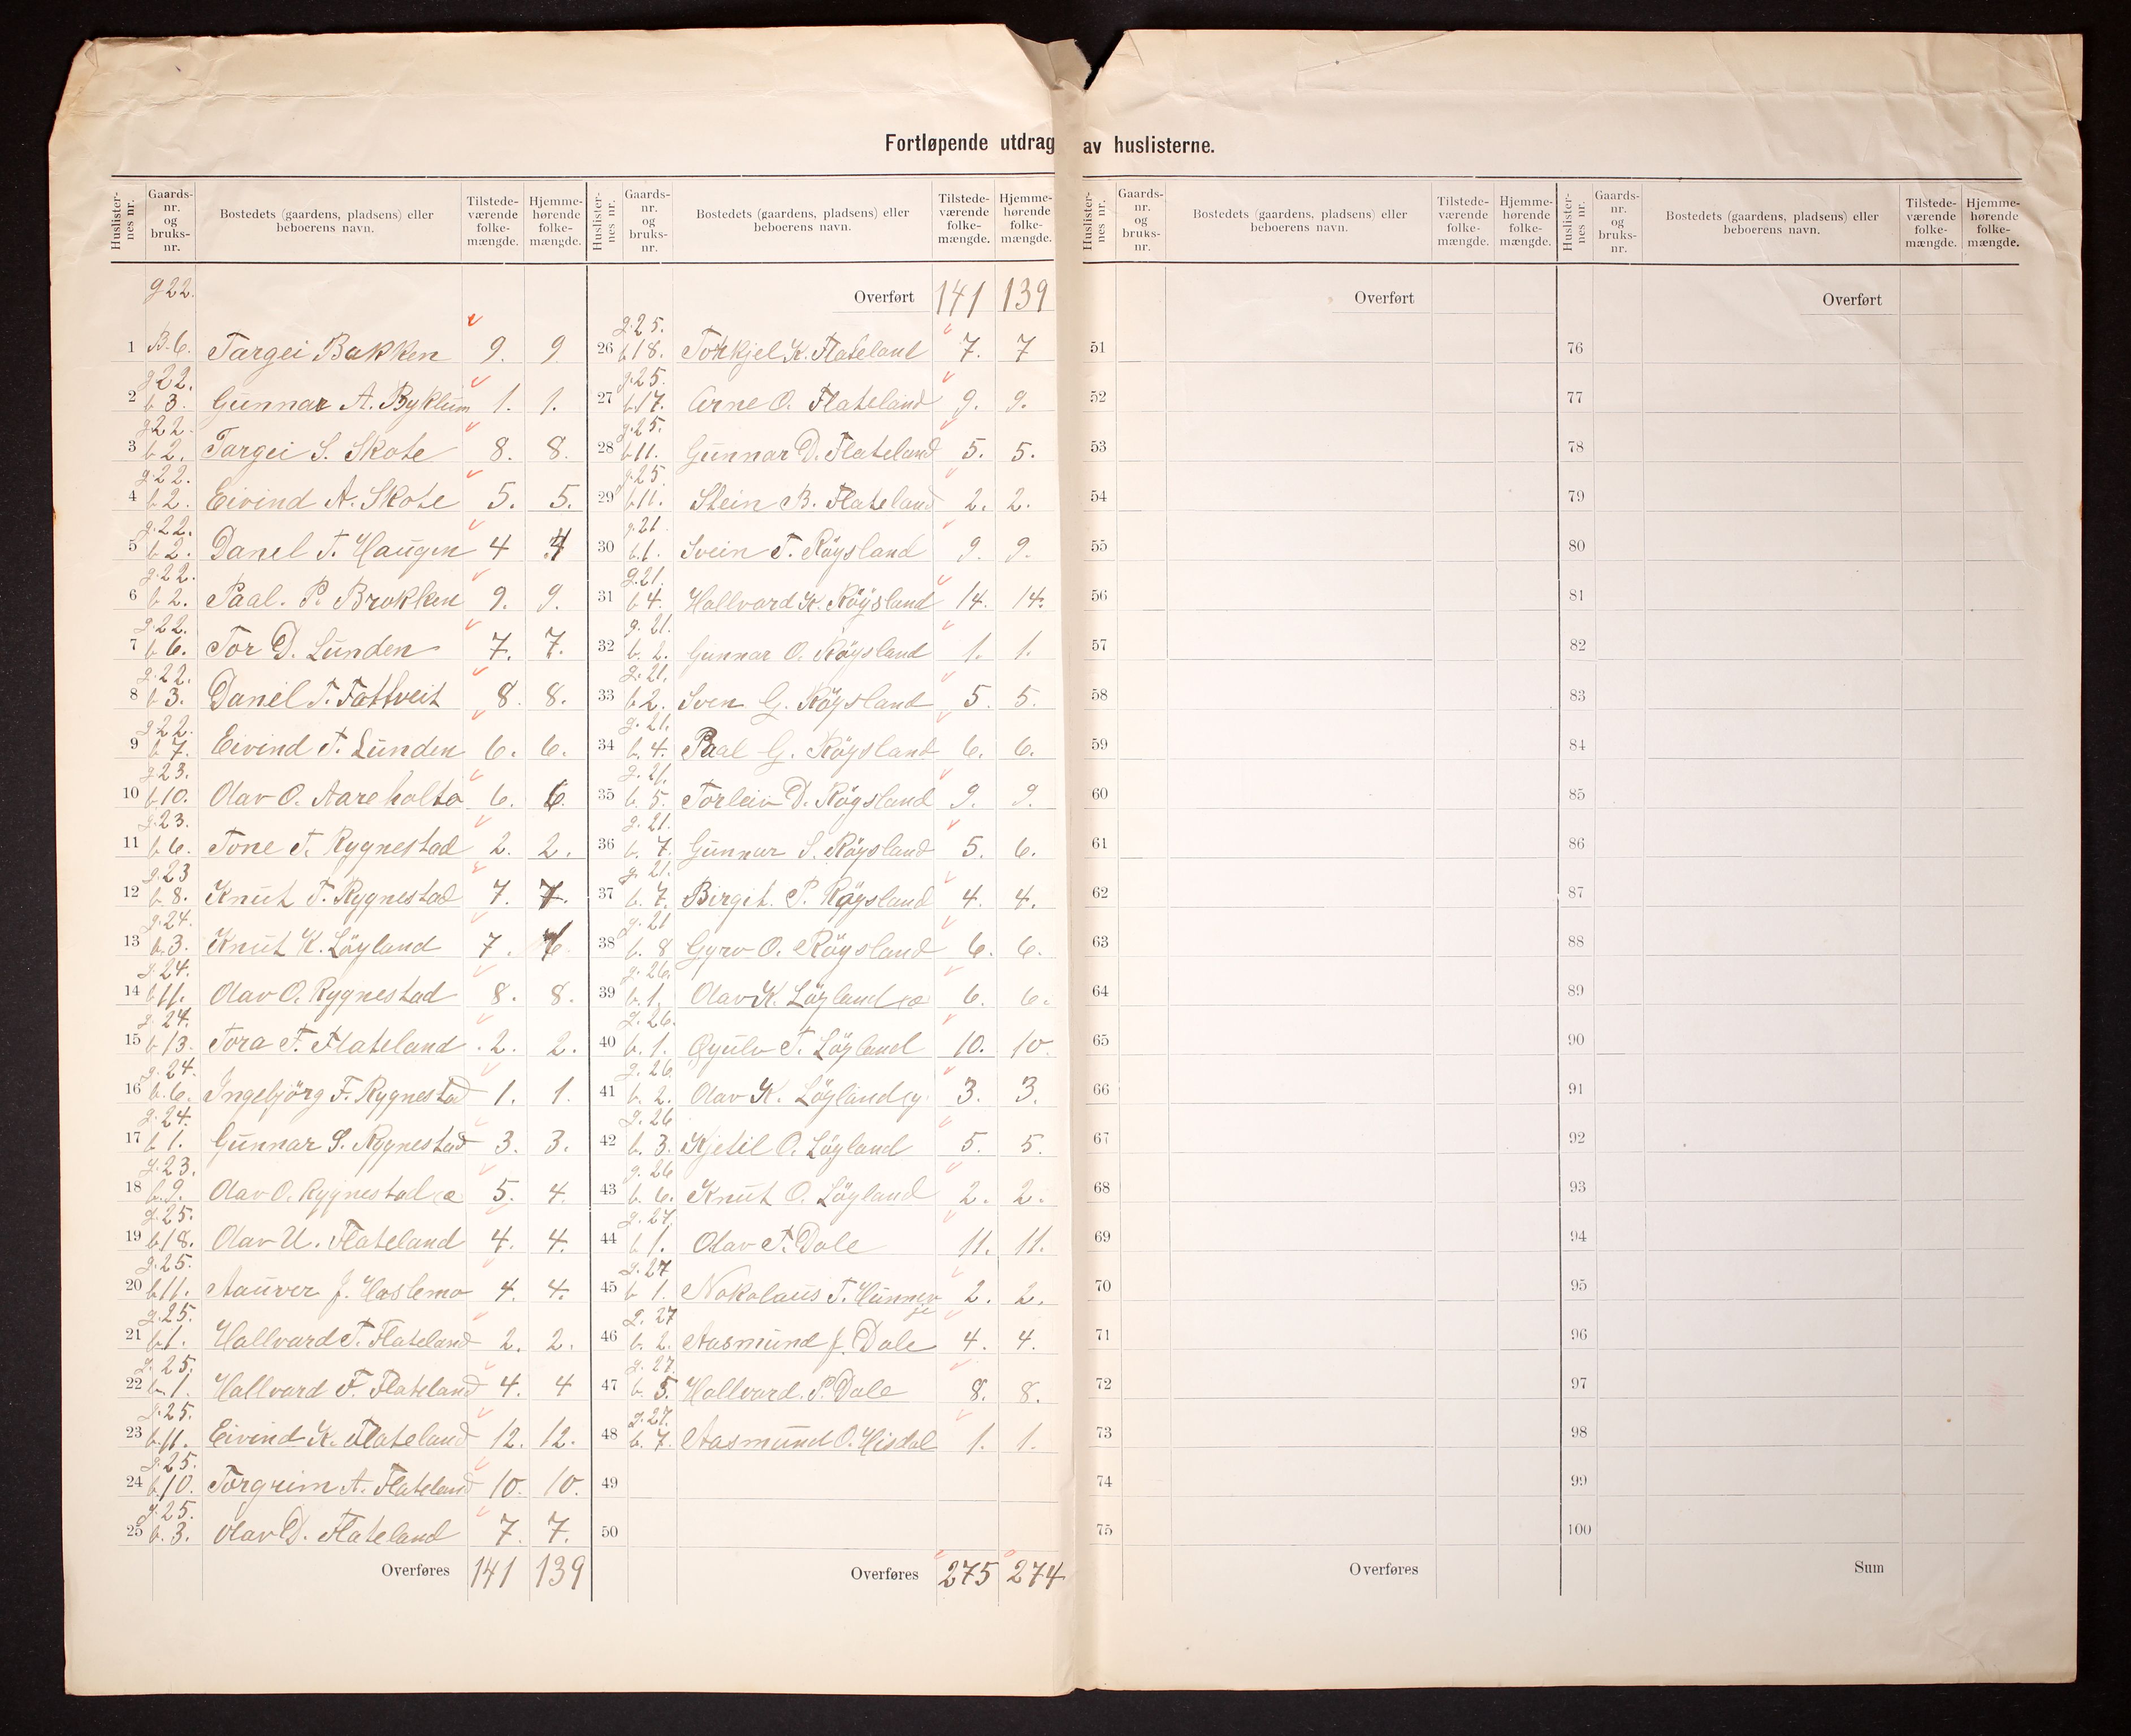 Fortløpende utdrag av huslisterne.
Huslisternes nr. Gaardsnr. og bruksnr. Bostedets (gaardens, pladsens) eller beboerens navn. Tilstedeværende folkemængde. Hjemmehørende folkemængde.
g 22.
1 B. 6. Targei Bakken 9. 9
g 22.
2 b 3. Gunnar A. Byklum 1. 1.
g 22.
3 b 2. Targei S. Skote 8. 8.
g 22.
4 b 2. Eivind A. Skote 5. 5.
g. 22.
5 b 2. Danel T. Haugen 4 4
g. 22.
6 b 2. Paal. P. Brokken 9. 9.
g. 22.
7 b 6. Tor D. Lunden 7. 7.
g. 22.
8 b 3. Danel T. Tattveit 8. 8.
g 22.
9 b 7. Eivind T. Lunden 6. 6.
g 23.
10 b. 10. Olav O. Aareholto 6. 6.
g. 23.
11 b 6. Tone T. Rygnestad 2. 2.
g. 23
12 b. 8. Knut T. Rygnestad 7. 7.
g. 24.
13 b. 3. Knut K. Löyland 7. 6.
g. 24.
14 b 11. Olav O. Rygnestad 8. 8.
g. 24.
15 b 13. Tora T. Flateland 2. 2.
g. 24.
16 b. 6. Ingebjörg F. Rygnestad 1. 1.
g. 24.
17 b 1. Gunnar S. Rygnestad 3. 3.
g. 23.
18 b. 9. Olav O. Rygnestad æ 5. 4.
g. 25.
19 b 18. Olav U. Flateland 4. 4.
g. 25.
20 b 11. Aauver J. Haslemo 4. 4.
g. 25.
21 b 1. Hallvard T. Flateland 2. 2.
g. 25.
22 b. 1. Hallvard F. Flateland 4. 4
g. 25.
23 b. 11. Eivind K. Flateland 12. 12.
g. 25.
24 b. 10. Torgrim A. Flateland 10. 10.
g. 25.
25 b. 3. Olav D. Flateland 7. 7.
Overføres 141 139
Huslisternes nr. Gaardsnr. og bruksnr. Bostedets (gaardens, pladsens) eller beboerens navn. Tilstedeværende folkemængde. Hjemmehørende folkemængde.
Overført 141 139
g. 25.
26 b 18. Torkjel K. Flateland 7. 7
g. 25.
27 b 17. Arne O. Flateland 9. 9.
g. 25.
28 b 11. Gunnar D. Flateland 5. 5.
g. 25
29 b 11. Stein B. Flateland 2. 2.
g. 21
30 b. 1. Svein T. Röysland 9. 9.
g. 21.
31 b 4. Hallvard K. Röysland 14. 14.
g. 21.
32 b. 2. Gunnar O. Röysland 1. 1.
g. 21.
33 b 2. Sven G. Röysland 5. 5.
g. 21.
34 b. 4. Paal G. Röysland 6. 6.
g. 21.
35 b. 5. Torleiv D. Röysland 9. 9.
g. 21.
36 b. 7. Gunnar S. Röysland 5. 6.
g. 21.
37 b. 7. Birgit. P. Röysland 4. 4.
g. 21
38 b. 8 Gyro O. Röysland 6. 6.
g. 26.
39 b. 1. Olav K. Löyland æ 6. 6.
g. 26.
40 b. 1. Gyulv T. Löyland 10. 10.
g. 26
41 b. 2. Olav K. Löyland y. 3. 3.
g. 26
42 b. 3. Kjetil O. Löyland 5. 5.
g. 26
43 b. 6. Knut O. Löyland 2. 2.
g. 27.
44 b 1. Olav T. Dale 11. 11.
g. 27
45 b 1. Nokolaus T. Hunnerje 2. 2.
g. 27
46 b. 2. Aasmund J. Dale 4. 4.
g. 27.
47 b. 5. Hallvard. P. Dale 8. 8.
g. 27.
48 b. 7. Aasmund O. Hisdal 1. 1.
49
50
Overføres 275 274
Huslisternes nr. Gaardsnr. og bruksnr. Bostedets (gaardens, pladsens) eller beboerens navn. Tilstedeværende folkemængde. Hjemmehørende folkemængde.
Overført
51
52
53
54
55
56
57
58
59
60
61
62
63
64
65
66
67
68
69
70
71
72
73
74
75
Overføres
Huslisternes nr. Gaardsnr. og bruksnr. Bostedets (gaardens, pladsens) eller beboerens navn. Tilstedeværende folkemængde. Hjemmehørende folkemængde.
Overført
76
77
78
79
80
81
82
83
84
85
86
87
88
89
90
91
92
93
94
95
96
97
98
99
100
Sum